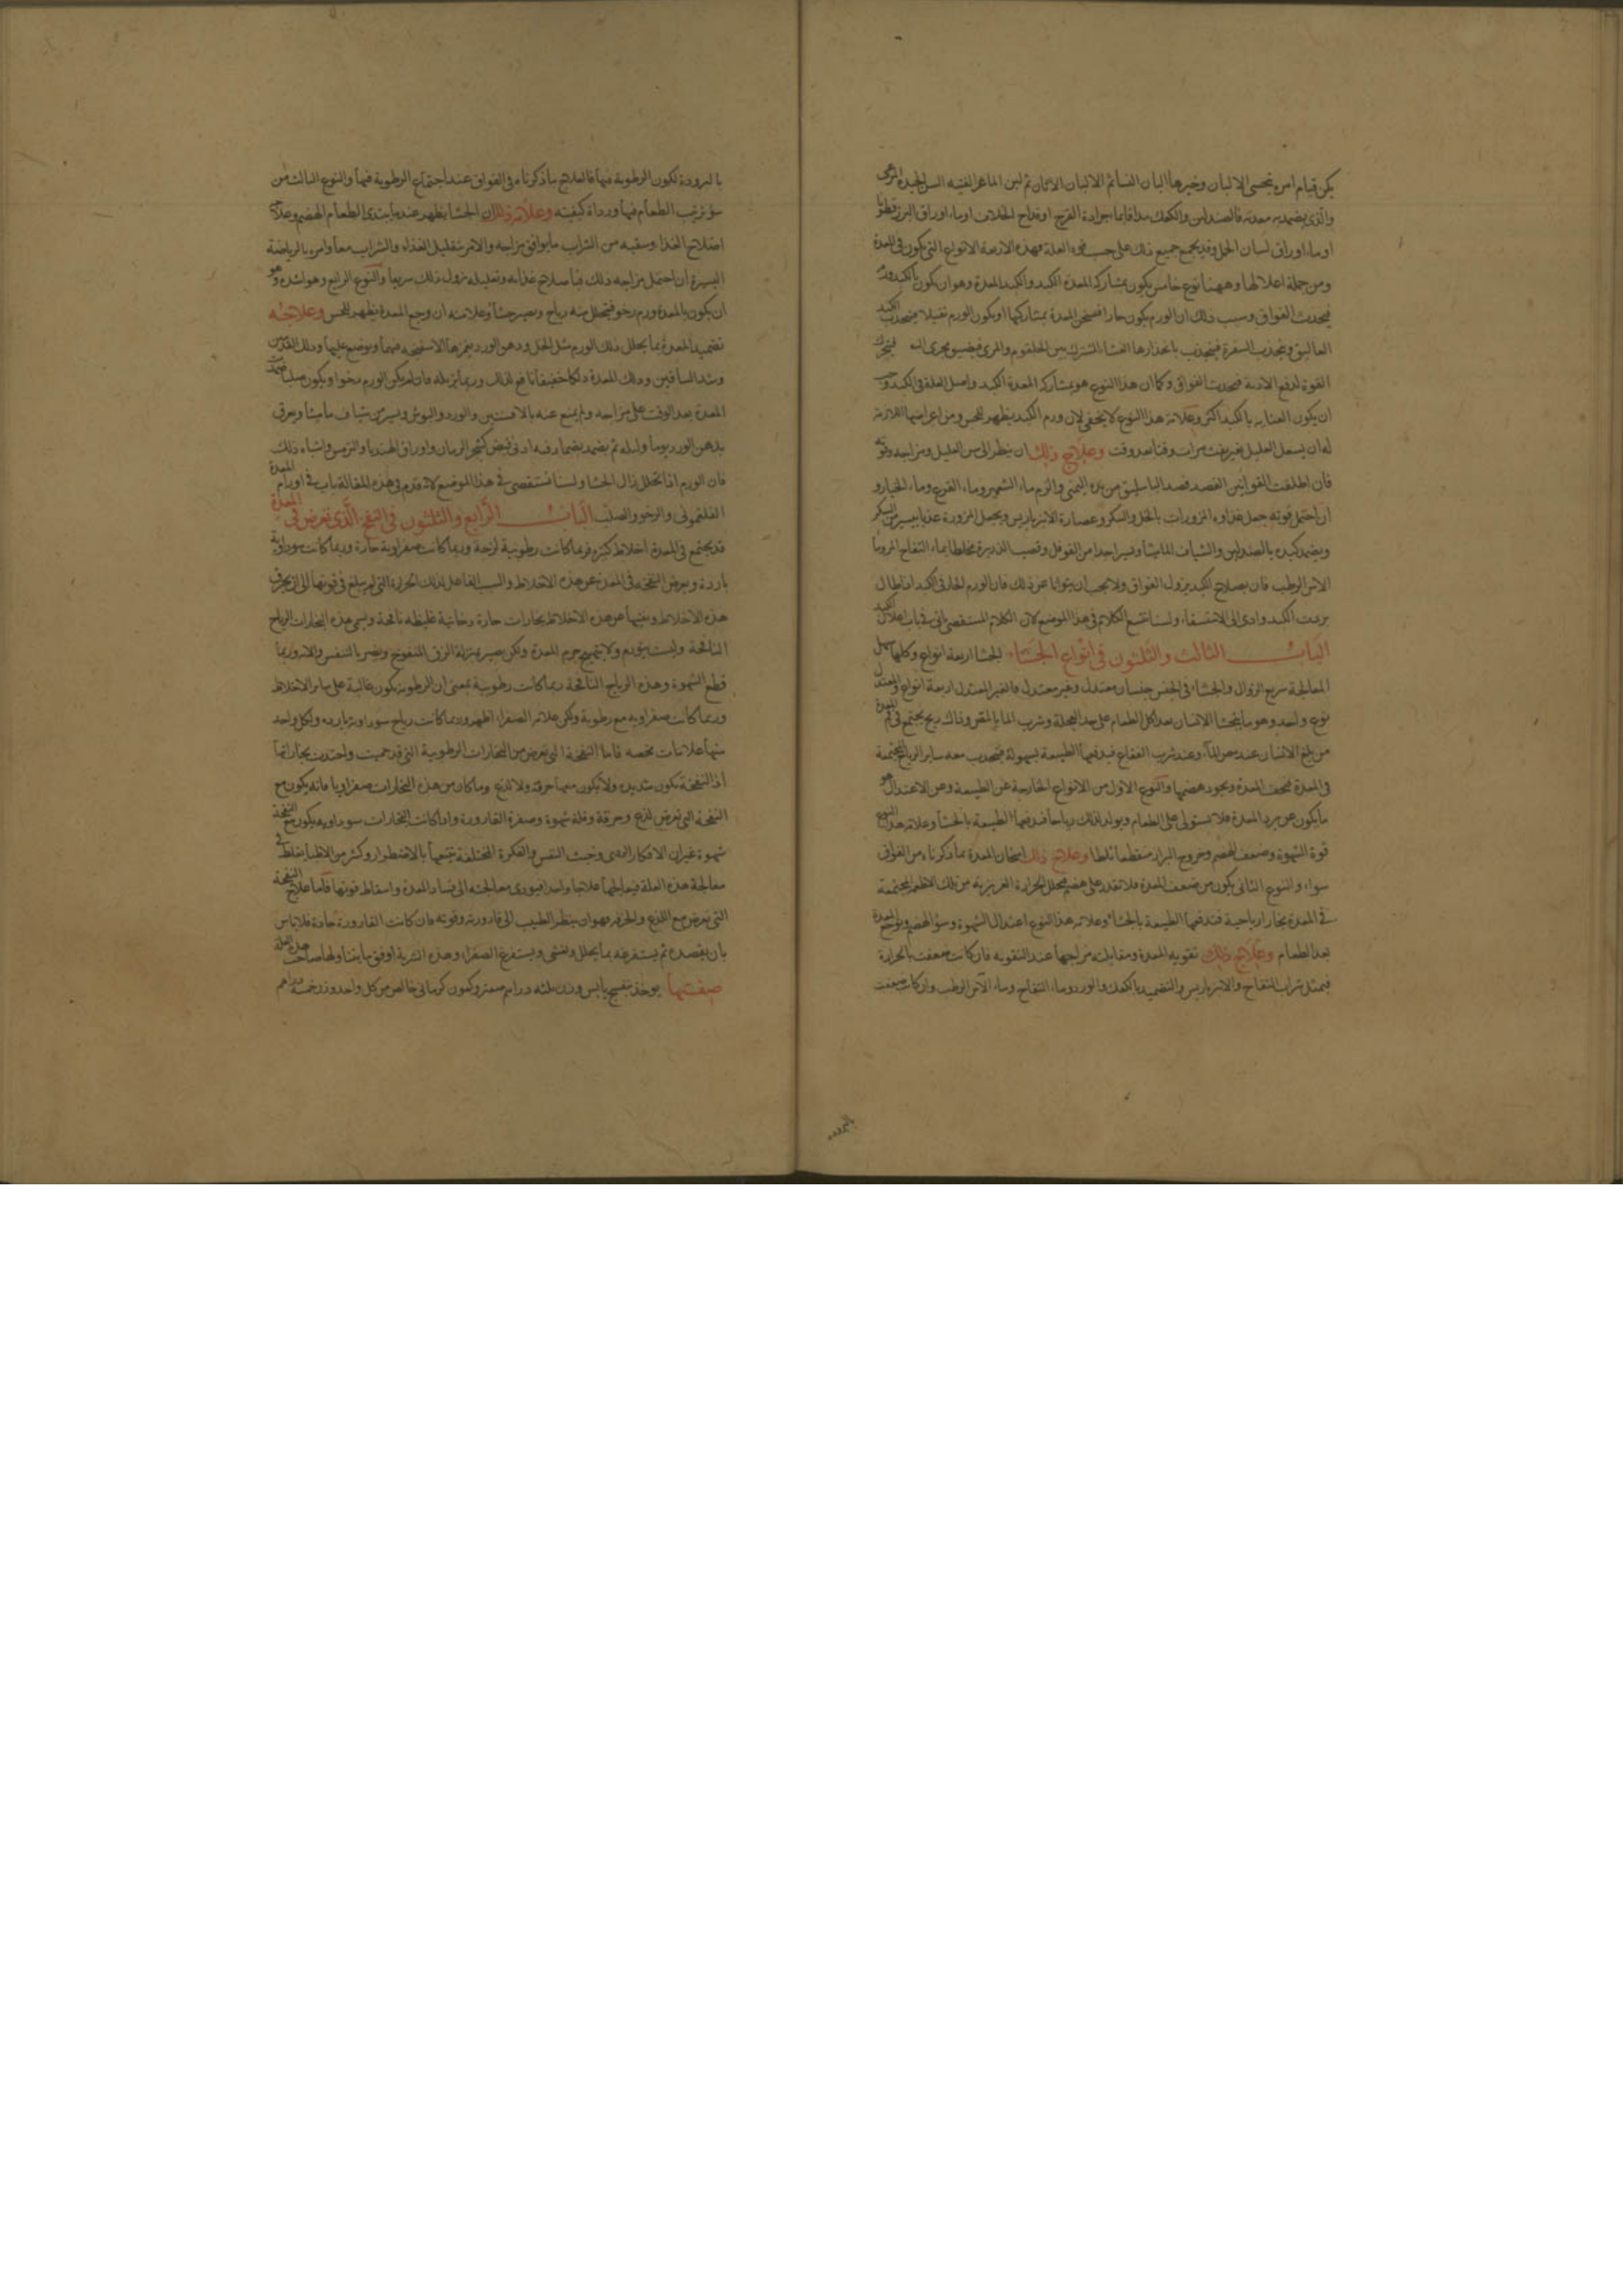 يكن قيام امره بتحسى الالبان وخيرها البان النسا ثم الالبان الاتن ثم لبن الماعز الفتيه السن الجيدة المرعى
والذى يضمد به معدته فالصندلين والكعك مدافا بما جرادة القرع او فداح الخلاف او ماء اوراق البزرقطونا
او ماء اوراق لسان الحمل وقد يجمع جميع ذلك على حسب قوة العلة فهذه الاربعة الانواع التى يكون فى المعدة
ومن جملة اعلالها وههنا نوع خامس يكون بمشاركة المعدة الكبد والكبد المعدة وهو ان يكون بالكبد ورم
فيحدث الفواق وسبب ذلك ان الورم يكون حارا فيسخن المعدة بمشاركتها او يكون الورم ثقيلا فينجذب الكبد
القوة لدفع الاذية فيحدث الفواق وكما ان هذا النوع هو بمشاركة المعدة الكبد واصل العلة فى الكبد وجب
ان يكون العناية بالكبد اكثر وعلامة هذا النوع لا يخفى لان ورم الكبد يظهر للحس ومن اعراضها اللازمة
له ان يسعل العليل بغير نفث مرات وقتا بعد وقت وعلاج ذلك ان ينظر الى سن العليل ومزاجه وقوته
فان اطلقت القوانين الفصد فصد الباسليق من يده اليمنى والزم ماء الشعير وماء القرع وماء الخيار و
ان احتمل قوته جعل غذاوه المزورات بالخل والسكر وعصارة الانبرباريس ويجعل المزورة عذبا بيسير من السكر
ويضمد كبده بالصندلين والشياف الماميثا ويسير احدا من الفوفل وقصب الذريرة مخلطا بماء التفاح المز وماء
الاس الرطب فان بصلاح الكبد يزول الفواق ولا يجب ان يتوانا عن ذلك فان الورم الحار فى الكبد اذا طال
بردت الكبد وادى الى الاستسقاء ولسنا نتبع الكلام فى هذا الموضع لان الكلام المستقصى ياتى فى باب اعلال الكبد
الباب الثالث والثلثون فى انواع الجشاء الجشا اربعة انواع وكلها سهل
المعالجة سريع الزوال والجشاء فى الجنس جنسان معتدل وغير معتدل فالغير المعتدل اربعة انواع والمعتدل
نوع واحد وهو ما يتجشا الانسان بعد اكل الطعام على حد العجلة وشرب الما بالمص وذاك ريح يجتمع فى فم المعدة
من بلع الانسان عند مص الماء وعند شرب الفقاع فيدفعها الطبيعة بسهولة فينجذب معه ساير الرياح المجتمعة
فى المعدة فيخف المعدة ويجود هضمها والنوع الاول من الانواع الخارجة عن الطبيعة وعن الاعتدال هو
ما يكون عن برد المعدة فلا تستولى على الطعام ويولد لذلك رياحا فيدفعها الطبيعة بالجشا وعلامة هذا النوع
قوة الشهوة وضعف الهضم وخروج البراز منقطعا ثلطا وعلاج ذلك اسخان المعدة بما ذكرناه من الفواق
سواء والنوع الثانى يكون من ضعف المعدة فلا تقدر على هضم محلل الحرارة الغريزية من تلك الاطعمة المجتمعة
فى المعدة بخارا رياحية فتدفعها الطبيعة بالجشاء وعلامة هذا النوع اعتدال الشهوة وسؤ الهضم ووجع المعدة
بعد الطعام وعلاج ذلك تقوية المعدة ومقابلة مزاجها عند التقوية فان كانت ضعفت بالحرارة
فبمثل شراب التفاح والانبرباريس والتضميد بالكعك والورد وماء التفاح وماء الآس الرطب وان كانت ضعفت
بالبرودة تكون الرطوبة فيها فالعلاج ما ذكرناه فى الفواق عند اجتماع الرطوبة فيها والنوع الثالث من
سؤ ترتيب الطعام فيها ورداة كيفيته وعلامة ذلك ان الجشا يظهر عند ما يبتدى الطعام الهضم وعلاجه
اصلاح الغذاء وسقيه من الشراب ما يوافق مزاجه والامر بتقليل الغذاء والشراب معا وامره بالرياضة
اليسيرة ان احتمل مزاجه ذلك فباصلاح غذائه وتعديله يزول ذلك سريعا والنوع الرابع وهو اشده وهو
ان يكون بالمعدة ورم رخو فيتحلل منه رياح ويصير جشأ وعلامته ان وجع المعدة يظهر للحس وعلاجه
تضميد المعدة بما يحلل ذلك الورم مثل الخل ودهن الورد
وشد الساقين ودلك المعدة دلكا خفيفا نافع لذلك وربما يزيله فان لم يكن الورم رخوا ويكون صلبا
المعدة بعد الوقت على مزاجه ولم يمنع عنه بالافسنتين والورد والبوش ويسير من شياف ماميثا ويعرق
بدهن الورد يوما وليلة ثم يضمد بضماد فيه ادنى قبض كشجر الرمان واوراق الهندبا والترمس واشباه ذلك
فان الورم اذا تحلل زال الجشا ولسنا نستقصى فى هذا الموضع لانه قدم فى هذه المقالة باب فى اورام المعدة
الفلغمونى والرخو والصلب الباب الرابع والثلثون فى النفخ الذى تعرض فى المعدة
قد يجتمع فى المعدة اخلاط كثيرة فربما كانت رطوبية لزجة وربما كانت صفراوية حارة وربما كانت سوداوية
باردة ويعرض النفخة فى المعدة عن هذه الاخلاط والسبب الفاعل لذلك الحرارة التى لم يبلغ فى قوتها الى ان يحرق
هذه الاخلاط ويفنيها عن هذه الاخلاط بخارات حارة دخانية غليظة نافخة ويسمى هذه البخارات الرياح
النافخة وليست بتورم ولا تهيج جرم المعدة ولكن يصير بمنزلة الزق المنفوخ ويضر بالتنفس والازدرد وربما
قطع الشهوة وهذه الرياح النافخة ربما كانت رطوبية بمعنى ان الرطوبة تكون غالبة على ساير الاخلاط
وربما كانت صفراوية مع رطوبة ولكن علامة الصفراء اظهر وربما كانت رياح سوداوية باردة ولكل واحد
منها علامات تخصه فاما النفخة التى تعرض من البخارات الرطوبية التى قد حميت واحتدت بخاراتها
اذ النفخة تكون شديدة ولا يكون معها حرقة ولا لذع وما كان من هذه البخارات صفراويا فانه يكون مع
النفخة التى تعرض لذع وحرقة وقلة شهوة وصفرة القارورة واذا كانت البخارات سوداوية يكون مع النفخة
شهوة غير ان الافكار الردى وخبث النفس والفكرة المختلفة يتبعها بالاضطرار وكثير من الاطبا يغلط فى
معالجة هذه العلة فيعالجها علاجا واحدا فيودى معالجته الى فساد المعدة واسقاط قوتها فاما علاج النفخة
التى تعرض مع اللذع والحرقة فهو ان ينظر الطبيب الى قارورته وقوته فان كانت القارورة حادة فلا باس
بان يفصده ثم يستفرغه بما يحلل ويفشى ويستفرغ الصفراء وهذه الشربة اوفق ما يتناولها صاحب هذه العلة
صفتها يوخذ بنفسج يابس وزن ثلثة دراهم صعتر وكمون كرمانى خالص من كل واحد وزن خمسة دراهم